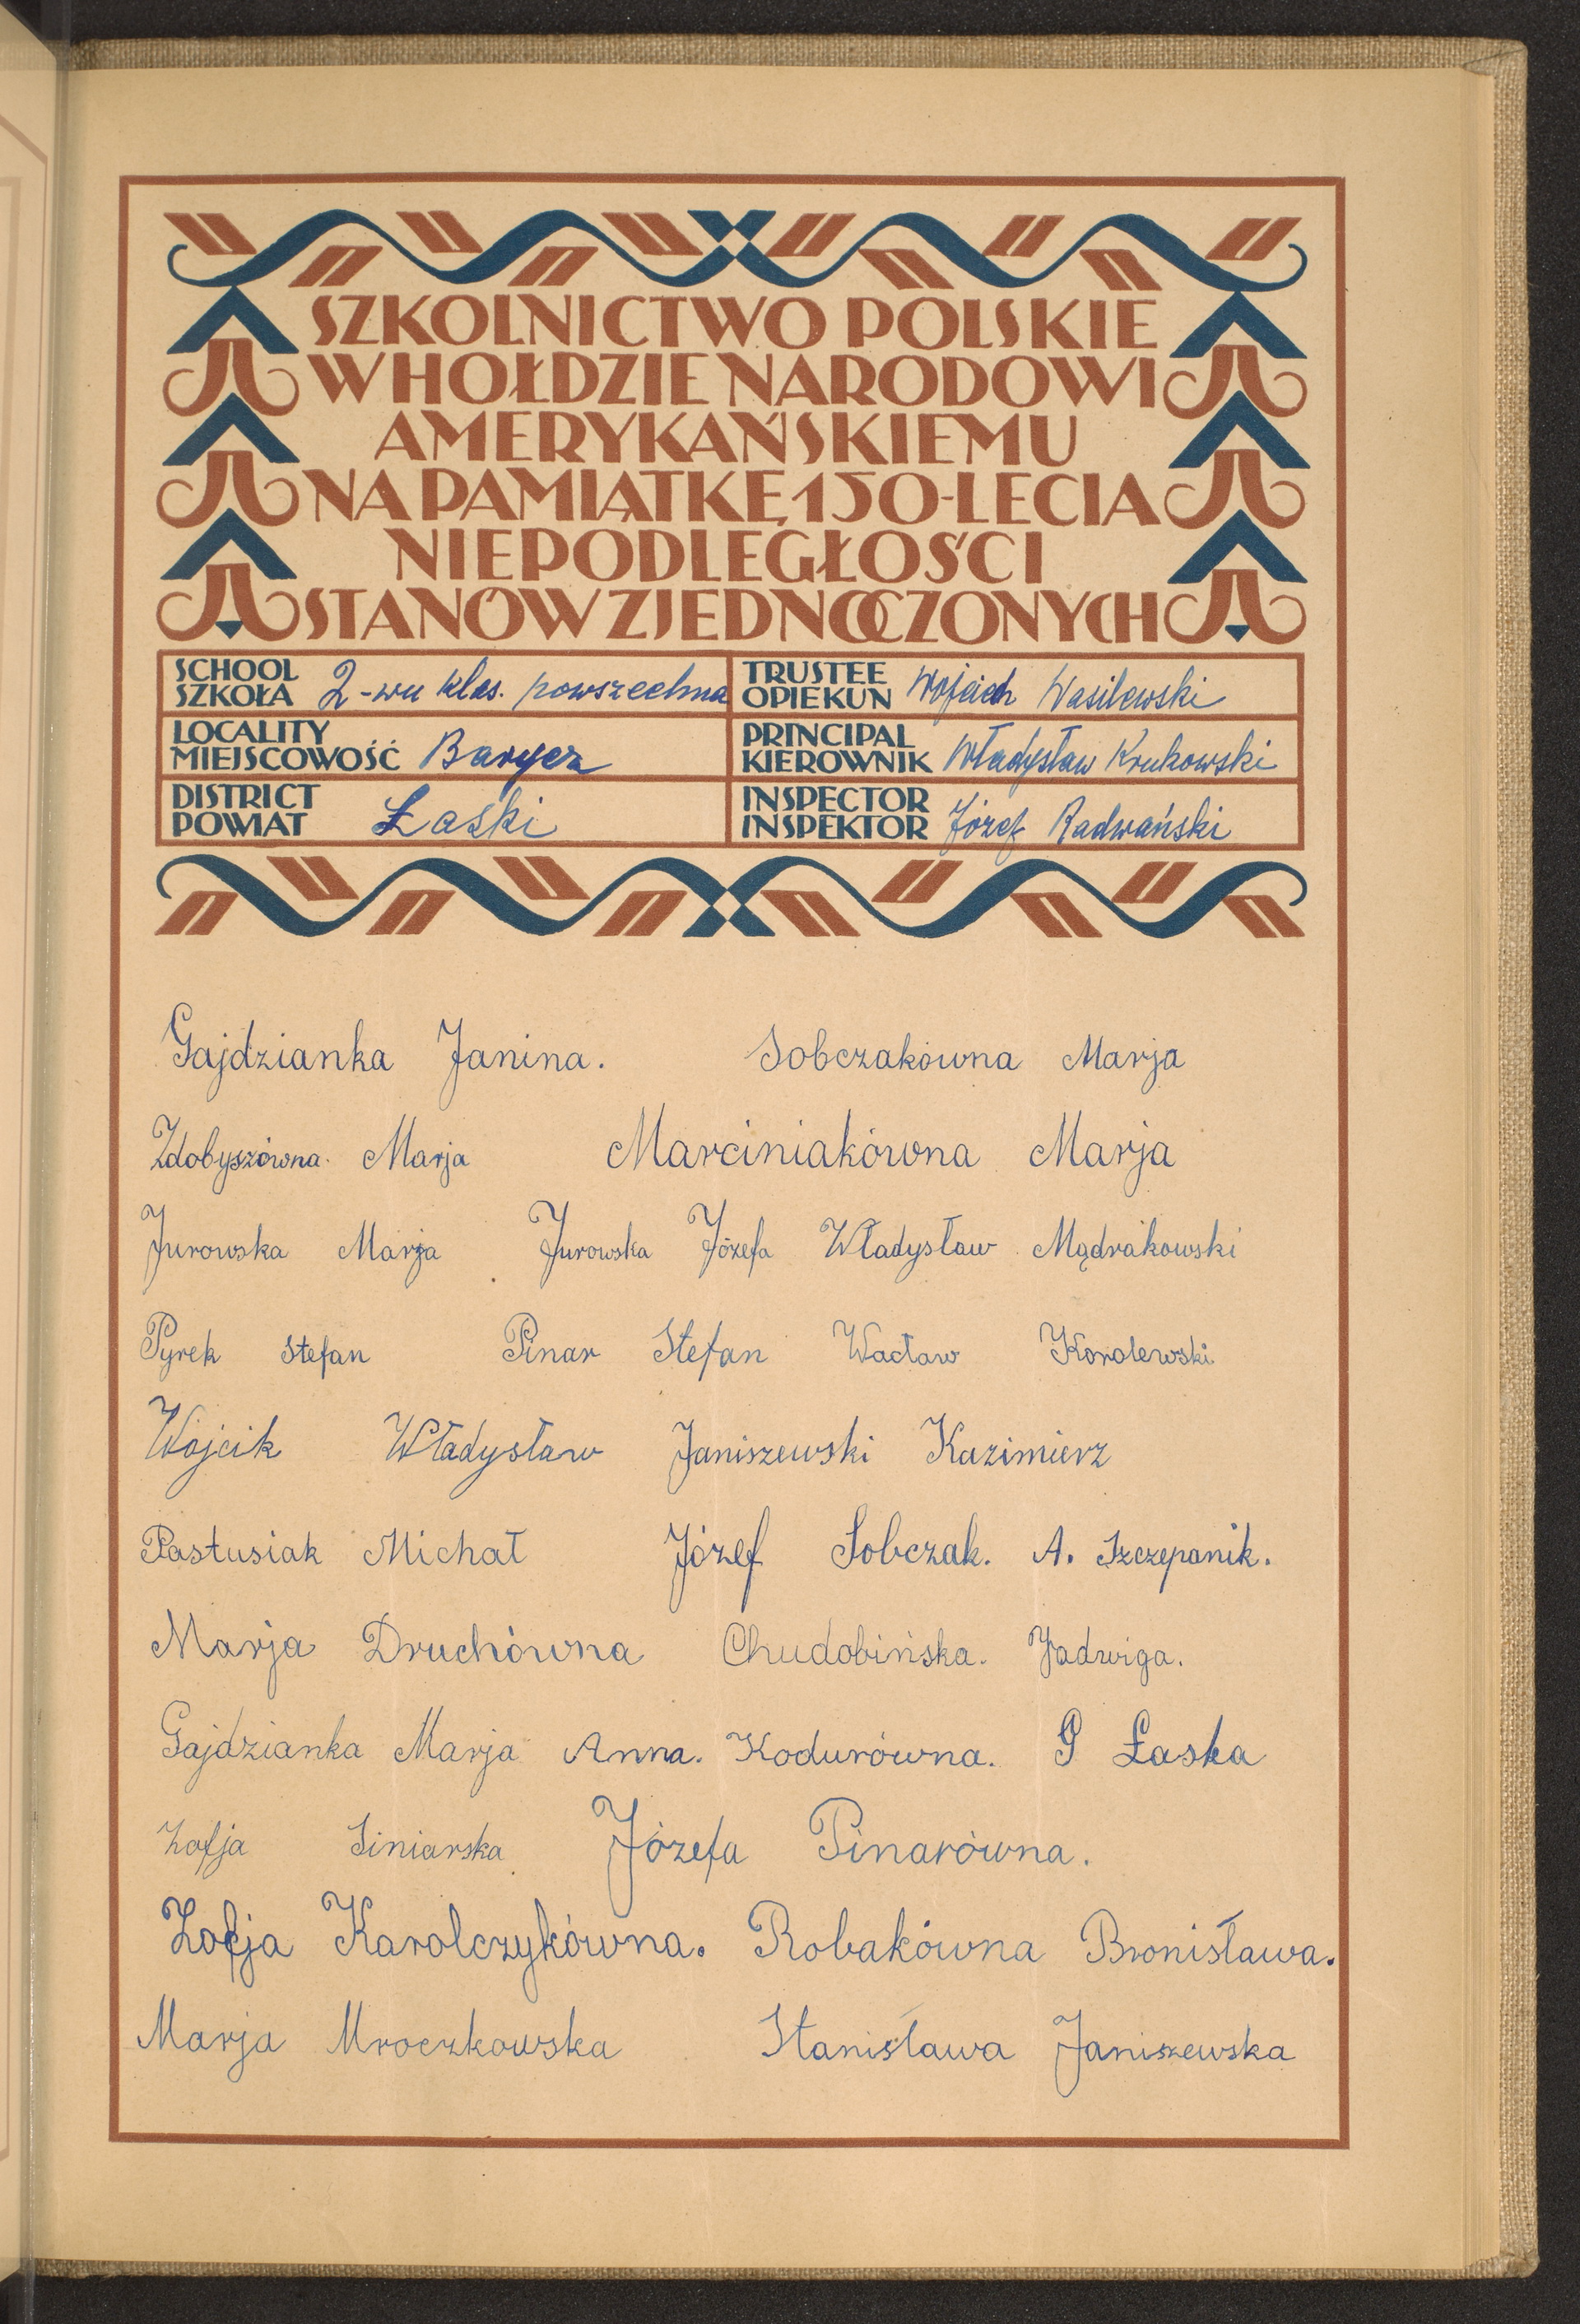 SZKOLNICTWO POLSKIE
W HOŁDZIE NARODOWI
AMERYKAŃSKIEMU
NA PAMIĄTKĘ 150-LECIA
NIEPODLEGŁOŚCI
STANÓW ZJEDNOCZONYCH
SCHOOL
SZKOŁA 2-wu klas. powszechna
TRUSTEE
OPIEKUN Wojciech Wasilewski
LOCALITY
MIEJSCOWOŚĆ Barycz
PRINCIPAL
KIEROWNIK Władysław Krukowski
DISTRICT
POWIAT Łaski
INSPECTOR
INSPEKTOR Józef Radwański
Gajdzianka Janina. Sobczakówna Marja
Zdobyszówna Marja Marciniakówna Marja
Jurowska Marja Jurowska Józefa Władysław Mądrakowski
Pyrek Stefan Pinar Stefan Wacław Korolewski
Wójcik Władysław Janiszewski Kazimierz
Pastusiak Michał Józef Sobczak. A. Szczepanik.
Marja Druchówna Chudobińska. Jadwiga.
Gajdzianka Marja Anna. Kodurówna. G Łaska
Zofja Siniarska Józefa Pinarówna.
Zofja Karolczykówna. Robakówna Bronisława.
Marja Mroczkowska Stanisława Janiszewska